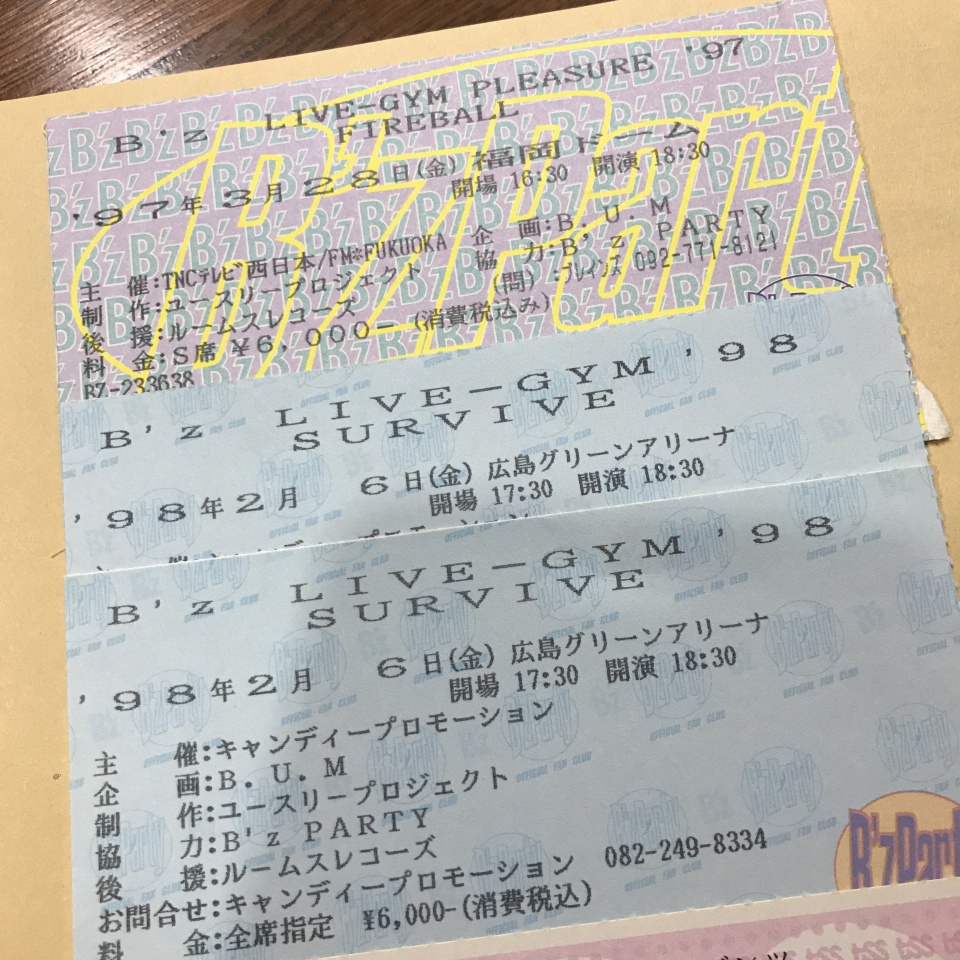 B'z LIVE-GYM PLEASURE '97
FIREBALL
'97年3月28日(金) 福岡ドーム
開場 16:30 開演 18:30
主 催:TNCテレビ西日本/FM*FUKUOKA 企 画:B.U.M
制 作:ユースリープロジェクト 協 力:B'z PARTY
後 援:ルームスレコーズ (問) :ブレインズ 092-771-8121
料 金:S席 ¥6,000-(消費税込み)
BZ-233638
B'z LIVE-GYM '98
SURVIVE
'98年2月 6日(金) 広島グリーンアリーナ
開場 17:30 開演 18:30
B'z LIVE-GYM '98
SURVIVE
'98年2月 6日(金) 広島グリーンアリーナ
開場 17:30 開演 18:30
主 催:キャンディープロモーション
企 画:B.U.M
制 作:ユースリープロジェクト
協 力:B'z PARTY
後 援:ルームスレコーズ
お問合せ:キャンディープロモーション 082-249-8334
料 金:全席指定 ¥6,000-(消費税込)
B'z Party